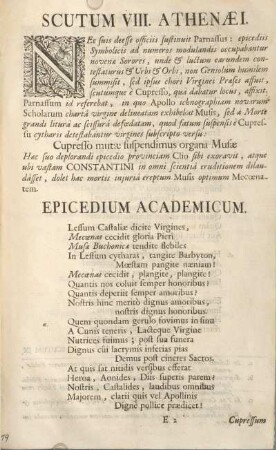 SCUTUM VIII. ATHENÆI.
NEc suis deesse officiis sustinuit Parnassus: epicediis
Symbolicis ad numeros modulandis occupabantur
novena Sorores, unde & luctum earundem con-
testaturus & Urbi & Orbi, non Geniolum humilem
summisit, sed ipsus chori Virginei Præses assuit,
scutumque è Cupresso, quâ dabatur locus, affixit.
Parnassum id referebat, in quo Apollo ichnographiam novarum
Scholarum chartâ virgine delineatam exhibebat Musis, sed à Morte
grandi litura ac scissurâ defœdatam, quod fatum suspensis è Cupres-
su cytharis detestabantur virgines subscripto versu:
Cupresso mutæ suspendimus organa Musæ
Hac suo deplorandi epicedio provinciam Clio sibi exoravit, atque
ubi vastam CONSTANTINI in omni scientiâ eruditionem dilau-
dâsset, dolet hac mortis injuriâ ereptum Musis optimum Mecœna-
tem.
EPICEDIUM ACADEMICUM.
Lessum Castaliæ dicite Virgines,
Mecœnas cecidit gloria Pieri
Musæ Buchonicæ tendite flebiles
In Lessum cytharas, tangite Barbyton,
Mœstam pangite næniam!
Mecœnas cecidit, plangite, plangite!
Quantus nos coluit semper honoribus?
Quantis deperiit semper amoribus?
Nostris hinc meritò dignus amoribus,
nostris dignus honoribus.
Quem quondam gerulo fovimus in sinu
A Cunis teneris, Lacteque Virgine
Natrices fuimus; post sua funera
Dignus cui lacrymis inferias pias
Demus post cineres Sacros.
At quis sat nitidis versibus efferat
Heroa, Aonides, Diis superis parem?
Nostris, Castalides, laudibus omnibus
Majorem, clarii quis vel Apollinis
Dignè pollice prædicet!
E 2
Cupressum